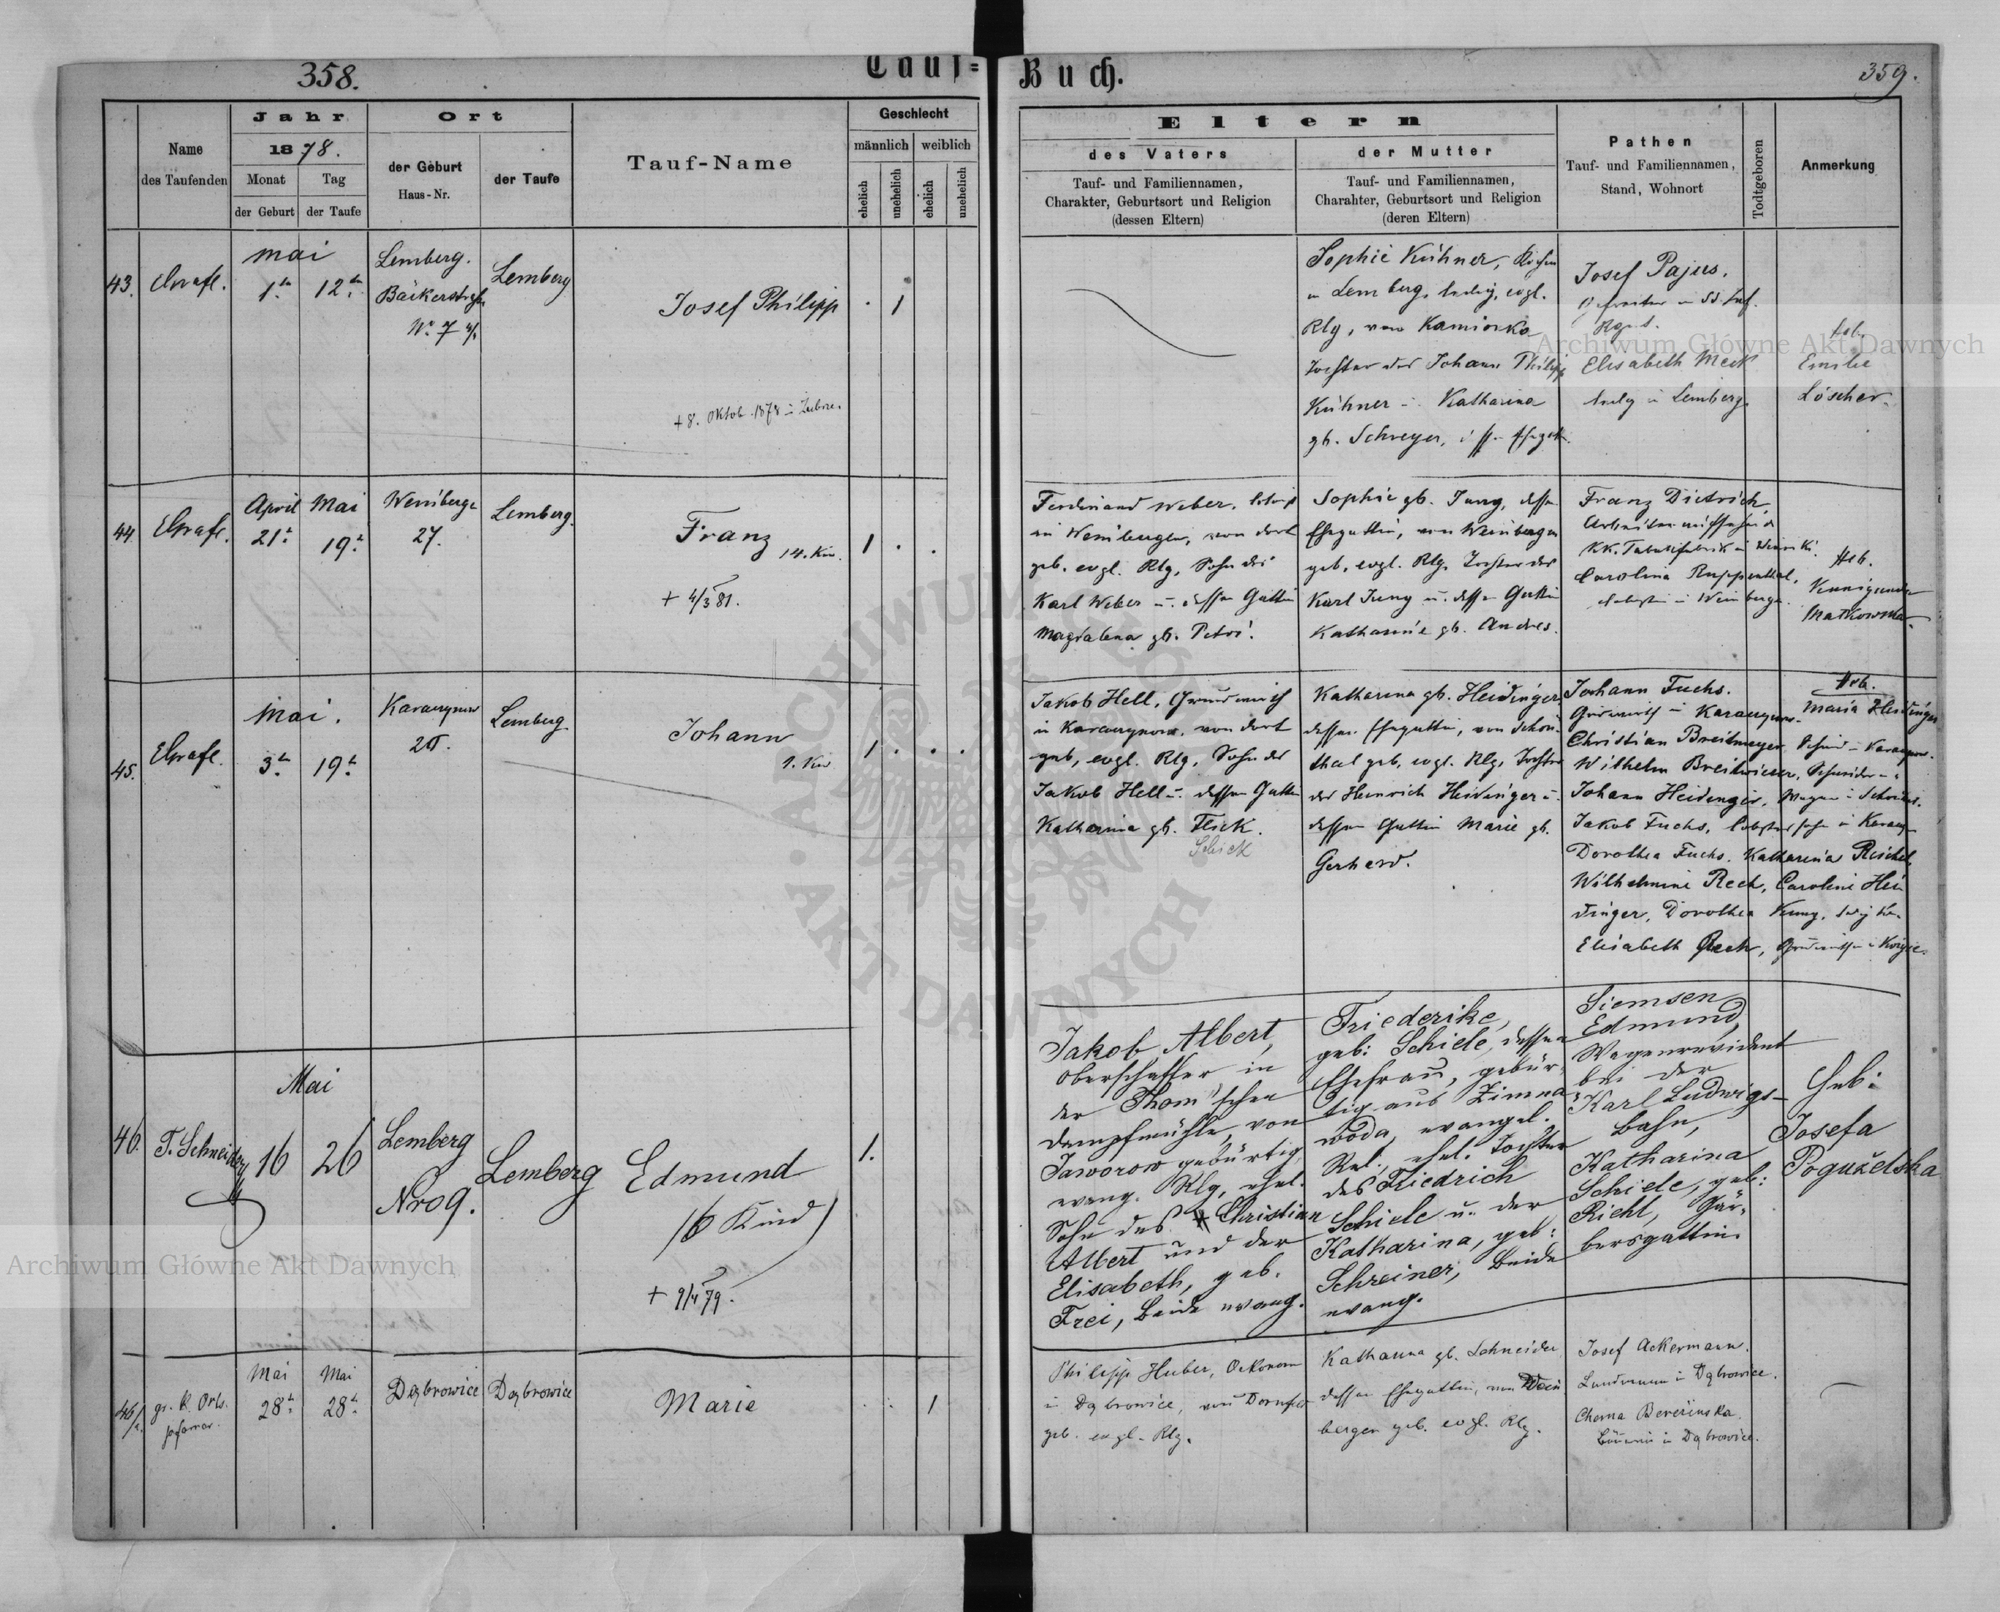 358.
Tauf=
Buch.
359.
Jahr
Ort
Geschlecht
Eltern
Name
des Taufenden
1878.
Monat
Tag
der Geburt
der Taufe
der Geburt
Haus-Nr.
der Taufe
Tauf-Name
männlich
weiblich
ehelich
unehelich
ehelich
unehelich
des Vaters
Tauf- und Familiennamen,
Charakter, Geburtsort und Religion
(dessen Eltern)
der Mutter
Tauf- und Familiennamen,
Charakter, Geburtsort und Religion
(deren Eltern)
Pathen
Tauf- und Familiennamen,
Stand, Wohnort
Todtgeboren
Anmerkung
43.
Mai
1ten
12ten
Lemberg.
Bäckerstraße
Nr. 7
Lemberg
Josef Philipp
1
+ 8. Oktob. 1878
Sophie Kühner,
in Lemberg, ledig, evgl.
Rlg, von Kamionka
Tochter des Johann Philipp
Kühner u. Katharina
gb. Schreyer,
Josef Pajus.
Elisabeth Meck
ledig in Lemberg.
Heb.
Emilie
Löscher.
44.
April
Mai
21t
19t
Weinbergen
27.
Lemberg.
Franz
14. Kind.
+ 4/3 81.
1
Ferdinand Weber,
in Weinbergen, von dort
geb. evgl. Rlg, Sohn des
Karl Weber u. dessen Gattin
Magdalena gb. Petri.
Sophie gb. Jung, dessen
Ehegattin, von Weinbergen
geb. evgl. Rlg, Tochter des
Karl Jung u. dessen Gattin
Katharine gb. Andres.
Franz Dietrich,
KK. Tabakfabrik in Winniki.
Carolina Ruppenthal,
in Weinbergen.
Heb.
Kunigunde
Matkowska.
45.
Mai.
3t
19t
Karaczynow
20.
Lemberg
Johann
1. Kind
1
Jakob Hell, Grundwirth
in Karaczynow, von dort
geb, evgl. Rlg, Sohn des
Jakob Hell u. dessen Gattin
Katharina gb. Flick.
Schick
Katharina gb. Heidinger,
dessen Ehegattin, von Schön-
thal geb, evgl. Rlg, Tochter
des Heinrich Heidinger u.
dessen Gattin Marie gb.
Gerhard.
Johann Fuchs.
Grundwirth in Karaczynow.
Christian Breitmeyer, Schmied in Karaczynow.
Wilhelm Breitwieser, Schneider
Johann Heidinger, Wagner in Schönthal.
Jakob Fuchs, in Karaczynow
Dorothea Fuchs, Katharina Reichel,
Wilhelmine Rech, Caroline Hei
dinger, Dorothea Kung,
Elisabeth Rech,
Heb.
Maria Heidinger
46.
T. Schneider
Mai
16
26
Lemberg
Nro 9.
Lemberg
Edmund
(6 Kind)
+ 9/4 79.
1.
Jakob Albert,
Oberschaffer in
der Thom'schen
Dampfmühle, von
Jaworow gebürtig,
evang. Rlg, ehel.
Sohn des Christian
Albert und der
Elisabeth, geb.
Frei, beide evang.
Friederike,
geb: Schiele, dessen
Ehefrau, gebür-
tig aus Zimna
woda, evangel.
Rel., ehel. Tochter
des Friedrich
Schiele u. der
Katharina, geb:
Schreiner, beide
evang.
Siemsen
Edmund,
Wagenrevident
bei der
Karl Ludwigs-
Bahn,
Katharina
Schiele, geb:
Riehl, Gär-
bersgattin.
Heb:
Josefa
Pogużelska
46/a
gr. k. Orts-
pfarrer.
Mai
28t
Mai
28t
Dąbrowice
Dąbrowice
Marie
1
Philipp Huber, Oekonom
in Dąbrowice, von Dornfeld
geb. evgl. Rlg.
Katharina gb. Schneider
dessen Ehegattin, von Wein
bergen geb. evgl. Rlg.
Josef Ackermann.
Landmann in Dąbrowice.
Bäuerin in Dąbrowice.
Archiwum Główne Akt Dawnych
Archiwum Główne Akt Dawnych
ARCHIWUM GŁÓWNE AKT DAWNYCH